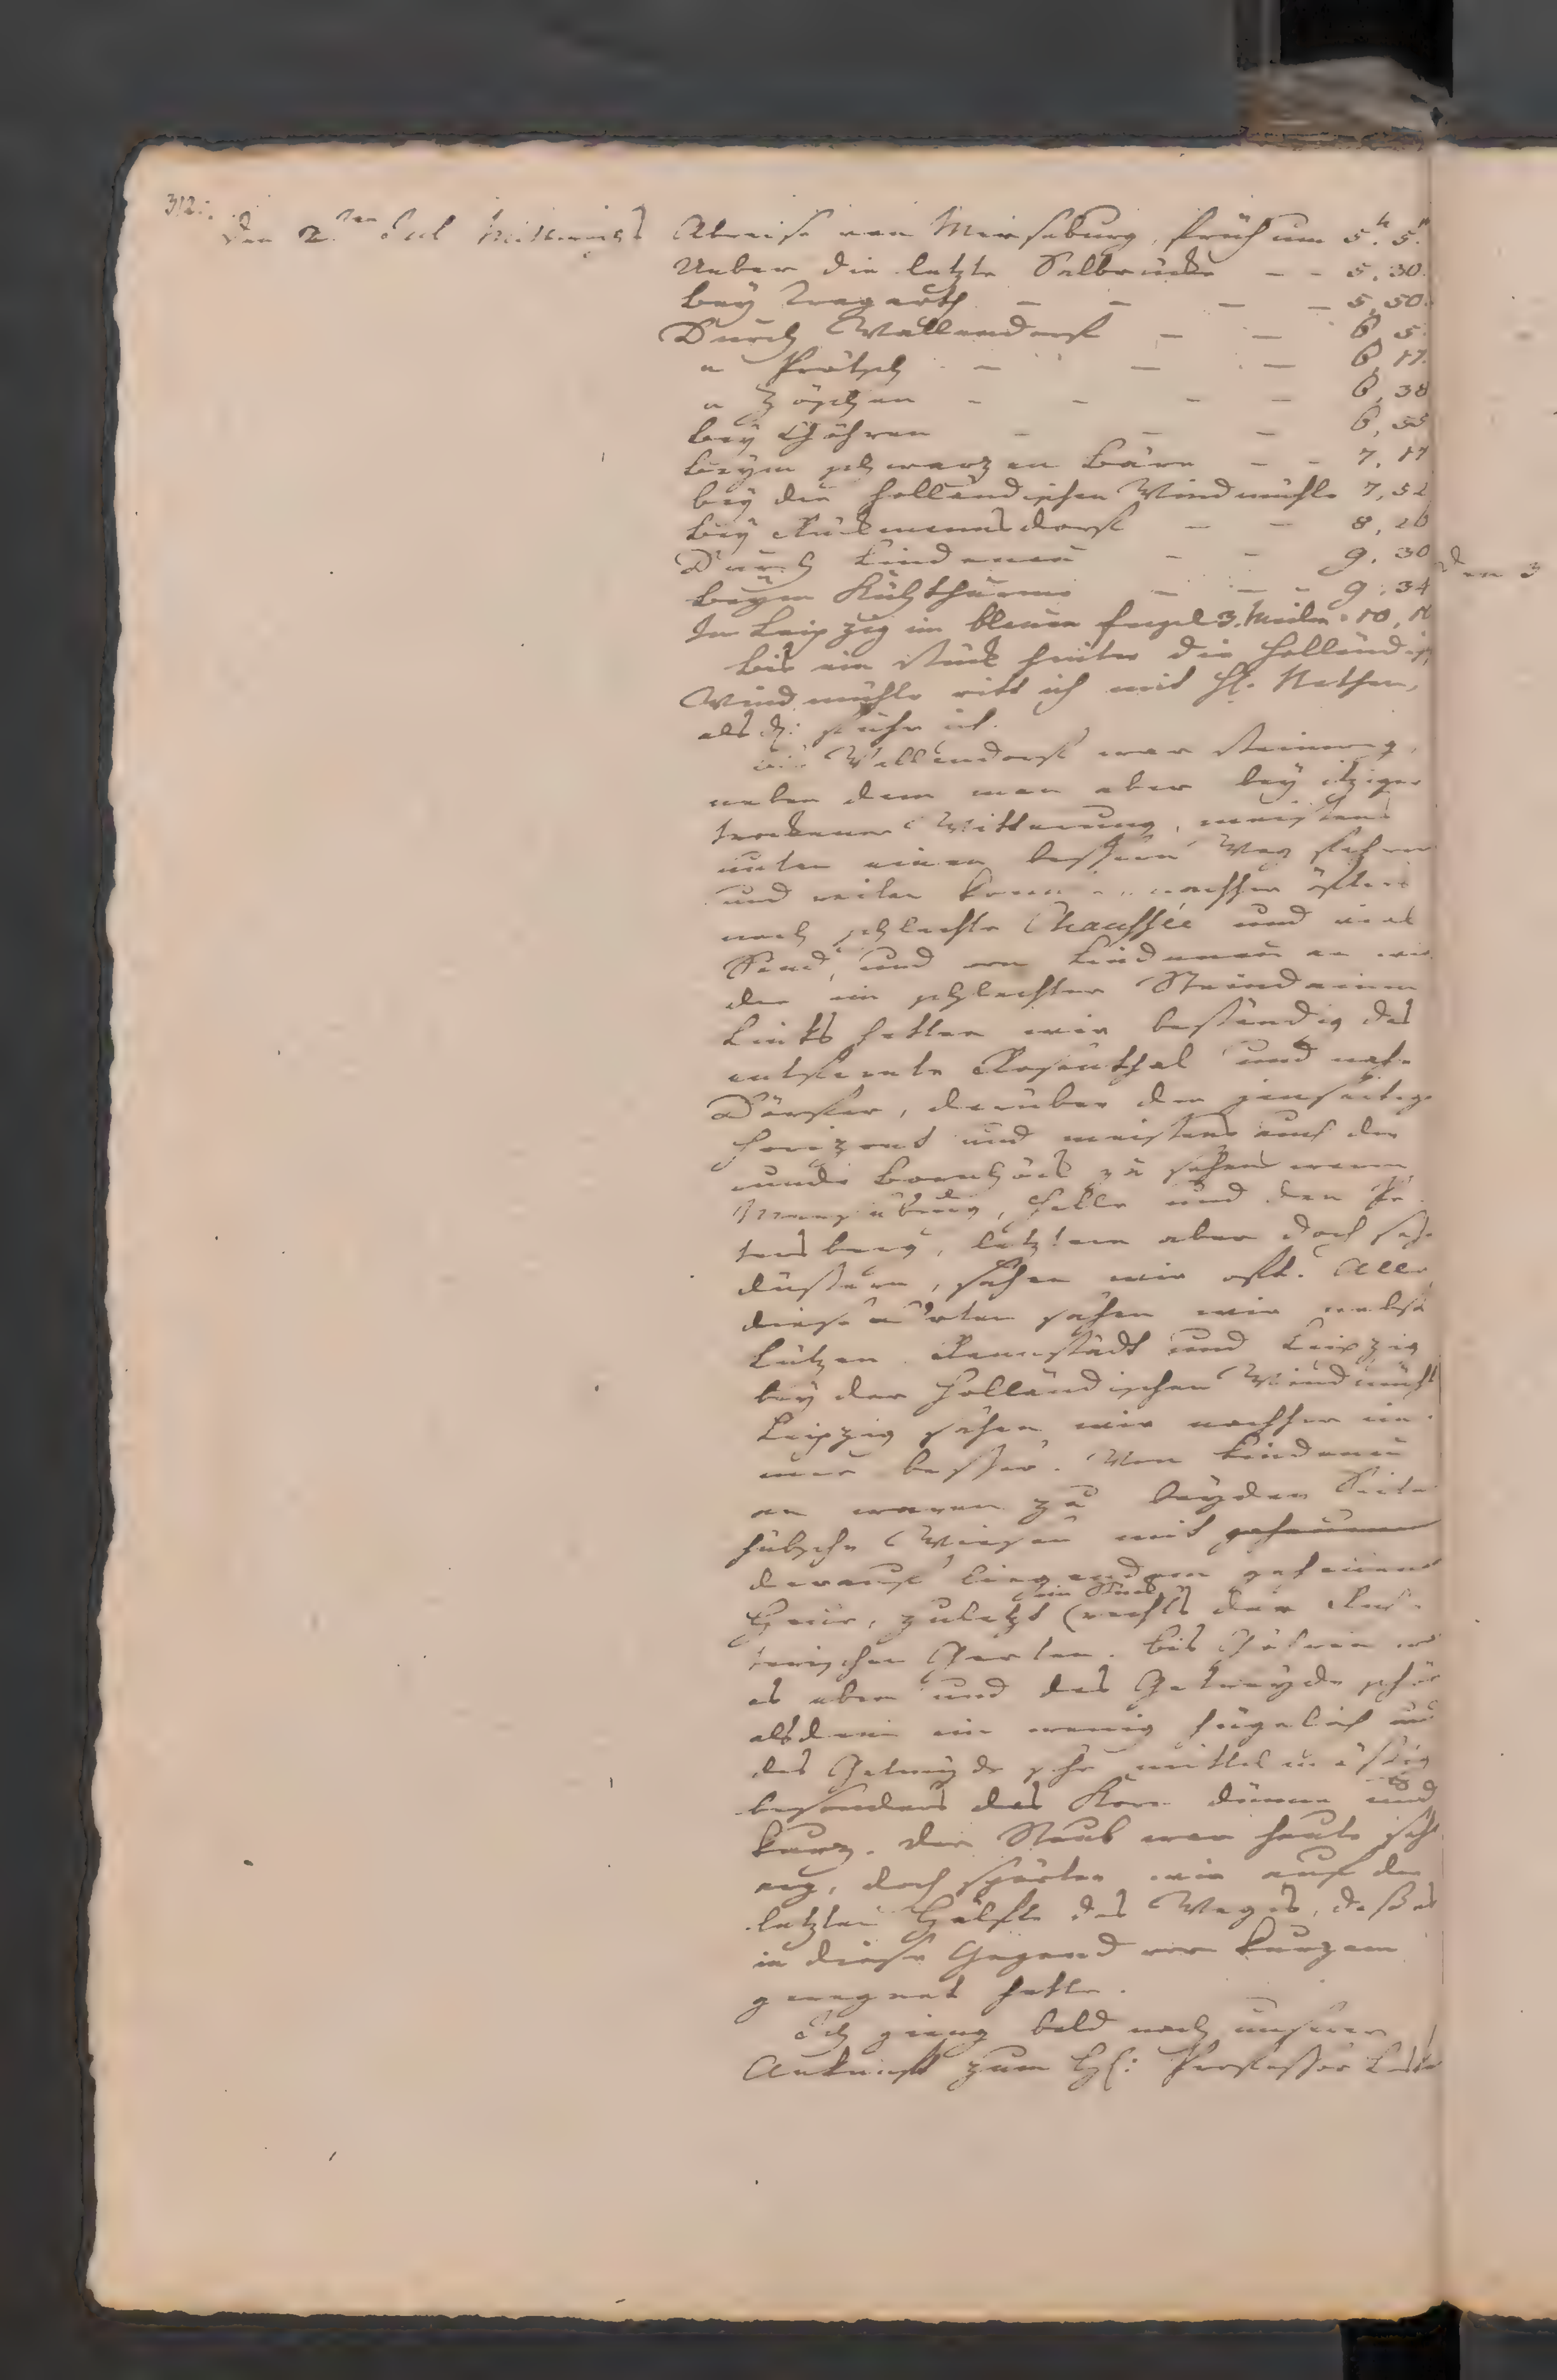 312.
Den 2.ten Jul Mittwochs Abreise von Merseburg, früh um 5.h 5.'
Ueber die letzte Salbrücke – – 5, 30.
bey Tragarth – – – – 5, 50.
Durch Wallendorf – – 6, 5.
" Prätsch – – – 6, 17.
" Zöschen – – – – 6, 38
bey Göhren – – – 6, 55
beym schwarzen Bärn – – 7, 17
bey der holländischen Windmühle 7, 52
bey Rückmannsdorf – – 8, 26
Durch Lindenau – – 9, 30
beym Kuhthurme – – – 9, 34
In Leipzig im blauen Engel 3. Meilen 10,
bis ein Stück hinter die holländisch
Windmühle ritt ich mit H. Nathan,
als d. fuhr ich.
Wallendorf war Steinweg,
neben dem man aber bey itziger
trockener Witterung, meistens
unten einen bessern Weg fahren
und reiten kann nachher öfters
noch schlechte Chaussée und viel
Sand, und von Lindenau an wie
der ein schlechter Steindamm
Links hatten wir beständig das
entfernte Rosenthal und nahe
Dörfer, darüber den jenseitigen
Horizont und meistens auf der
runde Bornhöck zu sehen wenn
Merseburg, Halle und den Pe
tersberg, letztern aber doch sehr
düstern, sahen wir oft. Alle
diese Örter sahen wir nebst
Lützen Ranstädt und Leipzig
bey der holländischen Windmühl
Leipzig sahen wir nachher im
mer besser. Von Lindenau
an waren zu beyden Seiten
hübsche Wiesen mit gehauenem
darauf liegendem gehauenen
Heue, zuletzt (ein Stück rechts der Rich
terische Garten. bis Göhren war
es eben und das Getreyde schön
alsdann ein wenig hügelich und
das Getreyde sehr mittelmäßig
besonders das Korn dünne und
kurz. Der Staub war heute sehr
arg, doch spürten wir auf der
letzten Hälfte des Weges, daß es
in dieser Gegend vor kurzem
geregnet hatte.
Ich gieng bald nach unserer
Ankunft zum H: Professor Leske
Den 3